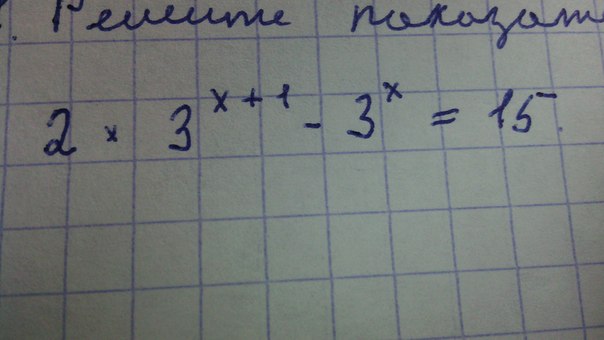 Решите показат
2 × 3^{x+1} - 3^x = 15.